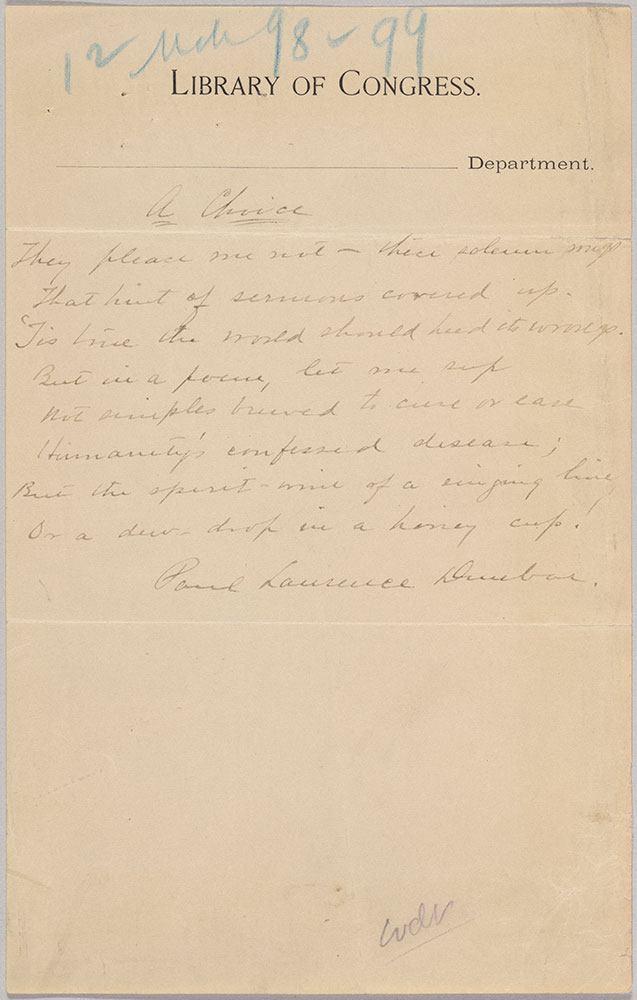 12 Mch 98 - 99
LIBRARY OF CONGRESS.
Department.
A Choice
They please me not - these solemn songs
That hint of sermons covered up.
'Tis true the world should heed its wrongs.
But in a poem, let me sup
Not simples brewed to cure or ease
Humanity's confessed disease;
But the spirit-wine of a singing line
Or a dew-drop in a honey cup!
Paul Laurence Dunbar.